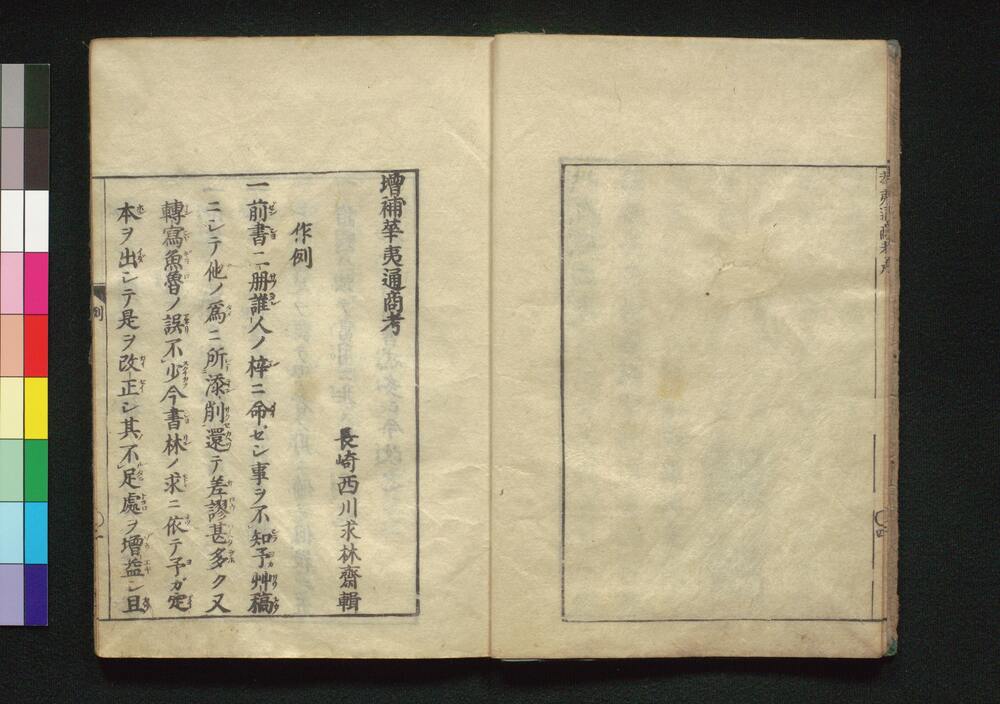 增補華夷通商考
長崎西川求林齋輯
作例
一前書二册誰人ノ梓ニ命ゼシ事ヲ不知予艸稿
ニシテ他ノ爲ニ所添削還テ差謬甚多ク又
轉寫魚魯ノ誤不少今書林ノ求ニ依テ予ガ定
本ヲ出シテ是ヲ改正シ其不足處ヲ增益シ且